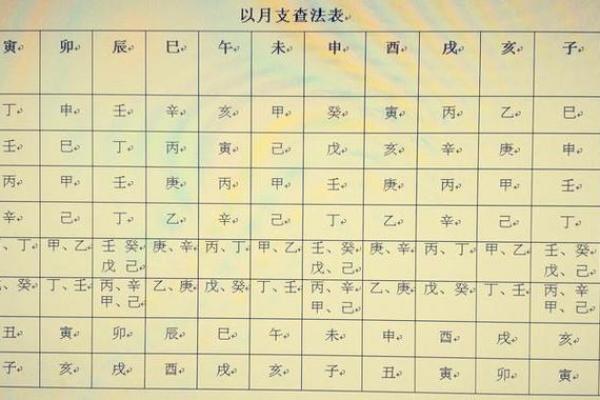 以月支查法表
寅 卯 辰 巳 午 未 申 酉 戌 亥 子
丁 申 壬 辛 亥 甲 癸 寅 丙 乙 巳
壬 巳 丁 丙 寅 己 戊 亥 辛 庚 申
丙 甲 壬 庚 丙 甲 壬 庚 丙 甲 壬
辛 己 丁 乙 辛 己 丁 乙 辛 己 丁
、丁 甲、乙 壬 癸 庚、辛 丙、丁 甲、乙 壬、癸 庚、辛 丙、丁 甲、乙 壬、癸
戊 己 戊、己 戊、己
、癸 丁、壬 丙、辛 乙、庚 戊、癸 丁、壬 丙、辛 乙、庚 戊、癸 丁、壬 丙、辛
甲、己 甲、己 甲、己
丑 寅 卯 辰 巳 午 未 申 酉 戌 亥
子 亥 戌 酉 戌 亥 子 丑 寅 卯 寅